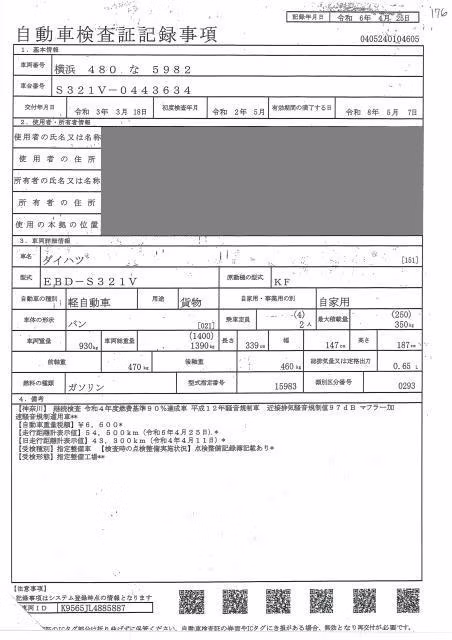 176
記録年月日 令和 6年 4月 25日
自動車検査証記録事項
0405240104605
1. 基本情報
車両番号 横浜 480 な 5982
車台番号 S321V-0443634
交付年月日 令和 3年 3月 18日 初度検査年月 令和 2年 5月 有効期間の満了する日 令和 8年 5月 7日
2. 使用者・所有者情報
使用者の氏名又は名称
使用者の住所
所有者の氏名又は名称
所有者の住所
使用の本拠の位置
3. 車両詳細情報
車名 ダイハツ [151]
型式 EBD-S321V 原動機の型式 KF
自動車の種別 軽自動車 用途 貨物 自家用・事業用の別 自家用
車体の形状 バン [021] 乗車定員 (4) 2人 最大積載量 (250) 350kg
車両重量 930kg 車両総重量 (1400) 1390kg 長さ 339cm 幅 147cm 高さ 187cm
前軸重 470kg 後軸重 460kg 総排気量又は定格出力 0.65 L
燃料の種類 ガソリン 型式指定番号 15983 類別区分番号 0293
4. 備考
【神奈川】 継続検査 令和4年度燃費基準90%達成車 平成12年騒音規制車 近接排気騒音規制値97dB マフラー加
速騒音規制適用車**
【自動車重量税額】¥6,600*
【走行距離計表示値】54,500km(令和6年4月25日)*
【旧走行距離計表示値】43,300km(令和4年4月11日)*
【受検種別】指定整備車 【検査時の点検整備実施状況】点検整備記録簿記載あり*
【受検形態】指定整備工場**
【注意事項】
記録事項はシステム登録時点の情報となります
車両ID K9565JL4885887